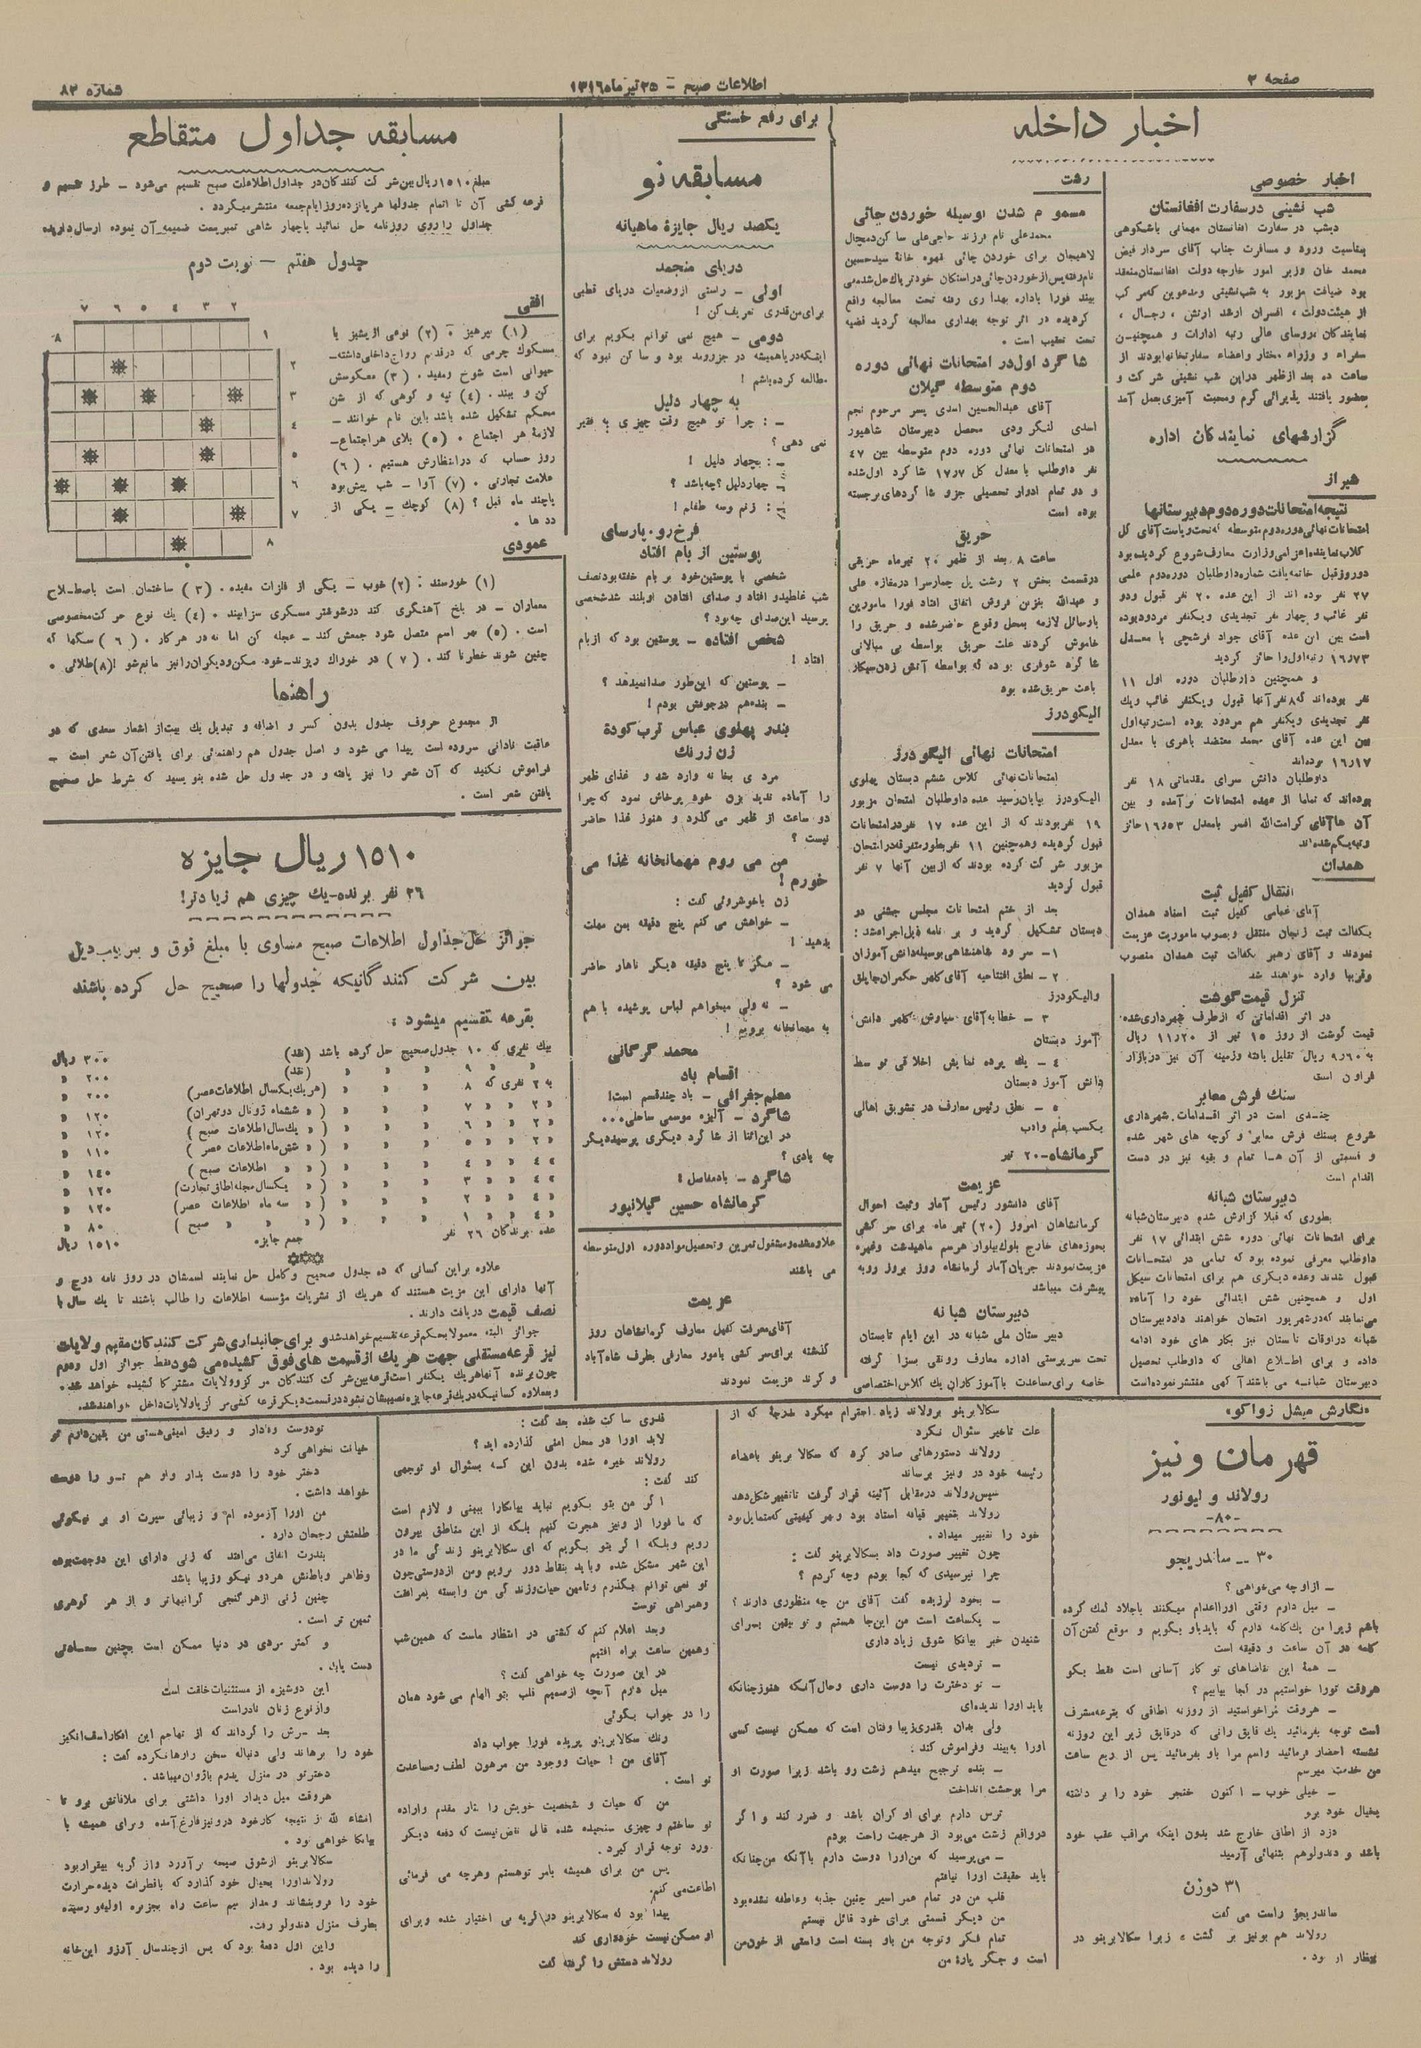 صفحه ۲
اطلاعات صبح - ۲۵ تیر ماه ۱۳۱۶
شماره ۸۲
اخبار داخله
اخبار خصوصی
شب نشینی در سفارت افغانستان
دیشب در سفارت افغانستان مهمانی باشکوهی
بمناسبت ورود و مسافرت جناب آقای سردار فیض
محمد خان وزیر امور خارجه دولت افغانستان منعقد
بود ضیافت مزبور به شب نشینی و مدعوین که مرکب
از هیئت دولت، افسران ارشد ارتش، رجال،
نمایندگان، روسای عالی رتبه ادارات و همچنین
سفراء و وزراء مختار واعضاء سفارتخانها بودند از
ساعت ده بعد از ظهر در این شب نشینی شرکت و
حضور یافتند پذیرائی گرم و محبت آمیزی بعمل آمد
گزارشهای نمایندگان اداره
شیراز
نتیجه امتحانات دوره دوم دبیرستانها
امتحانات نهائی دوره دوم متوسطه که تحت ریاست آقای گل
گلاب نماینده اعزامی وزارت معارف شروع گردیده بود
دو روز قبل خاتمه یافت شماره داوطلبان دوره دوم علمی
۲۷ نفر بوده اند از این عده ۲۰ نفر قبول ودو
نفر غائب و چهار نفر تجدیدی ویکنفر مردود بوده
است بین این عده آقای جواد فرشچی با معدل
۱۶٫۷۳ رتبه اول را حائز گردید
و همچنین داوطلبان دوره اول ۱۱
نفر بوده اند که ۸ نفر آنها قبول ویکنفر غائب ویک
نفر تجدیدی ویکنفر هم مردود بوده است رتبه اول
بین این عده آقای محمد معتضد باهری با معدل
۱۶٫۱۷ بوده‌اند
داوطلبان دانش سرای مقدماتی ۱۸ نفر
بوده‌اند که تماما از عهده امتحانات برآمده و بین
آن ها آقای کرامت‌الله افسر با معدل ۱۶٫۵۳ حائز
رتبه یکم شده‌اند
همدان
انتقال کفیل ثبت
آقای ضیامی کفیل ثبت اسناد همدان
بکفالت ثبت زنجان منتقل وبصوب ماموریت عزیمت
نمودند و آقای رهبر بکفالت ثبت همدان منصوب
وقریبا وارد خواهند شد
تنزل قیمت گوشت
در اثر اقداماتی که از طرف شهرداری شده
قیمت گوشت از روز ۱۵ تیر از ۱۱٫۲۰ ریال
به ۹٫۶۰ ریال تقلیل یافته وزمینه آن نیز در بازار
فراوان است
سنگ فرش معابر
چندی است در اثر اقدامات شهرداری
شروع بسنگ فرش معابر و کوچه های شهر شده
و قسمتی از آن ها تمام و بقیه نیز در دست
اقدام است
دبیرستان شبانه
بطوری که قبلا گزارش شده دبیرستان شبانه
برای امتحانات نهائی دوره شش ابتدائی ۱۷ نفر
داوطلب معرفی نموده بود که تمامی در امتحانات
قبول شدند وعده دیگری هم برای امتحانات سیکل
اول و همچنین شش ابتدائی خود را آماده
می‌نمایند که در شهریور امتحان خواهند داد دبیرستان
شبانه در اوقات تابستان نیز بکار های خود ادامه
داده و برای اطلاع اهالی که داوطلب تحصیل
دبیرستان شبانه می باشند آگهی منتشر نموده است
رشت
مسموم شدن بوسیله خوردن چائی
محمدعلی نام فرزند حاجی علی ساکن دهچال
لاهیجان برای خوردن چائی قهوه خانه سید حسین
نام رفته پس از خوردن چائی در استکان خود تریاک حل شده می
بیند فورا باداره بهداری رفته تحت معالجه واقع
گردیده در اثر توجه بهداری معالجه گردید قضیه
تحت تعقیب است .
شاگرد اول در امتحانات نهائی دوره
دوم متوسطه گیلان
آقای عبدالحسین اسدی پسر مرحوم نجم
اسدی لنگرودی محصل دبیرستان شاهپور
در امتحانات نهائی دوره دوم متوسطه بین ۴۷
نفر داوطلب با معدل کل ۱۷٫۷ شاگرد اول شده
و دو تمام ادوار تحصیلی جزو شاگردهای برجسته
بوده است
حریق
ساعت ۸ بعد از ظهر ۲۰ تیرماه حریقی
در قسمت بخش ۲ رشت پل چمارسرا در مغازه علی
و عبدالله بنزین فروش اتفاق افتاد فورا مامورین
با وسائل لازمه بمحل وقوع حاضر شده و حریق را
خاموش کردند علت حریق بواسطه بی مبالاتی
شاگرد شوفری بوده که بواسطه آتش زدن سیگار
باعث حریق شده بود
الیگودرز
امتحانات نهائی الیگودرز
امتحانات نهائی کلاس ششم دبستان پهلوی
الیگودرز بپایان رسید عده داوطلبان امتحان مزبور
۱۹ نفر بودند که از این عده ۱۷ نفر در امتحانات
قبول گردیده وهمچنین ۱۱ نفر بطور متفرقه در امتحان
مزبور شرکت کرده بودند که از بین آنها ۷ نفر
قبول گردید
بعد از ختم امتحانات مجلس جشنی در
دبستان تشکیل گردید و برنامه ذیل اجرا شد:
۱- سرود شاهنشاهی بوسیله دانش آموزان
۲- نطق افتتاحیه آقای کلهر حکمران جاپلق
والیگودرز
۳ - خطابه آقای سیاوش کلهر دانش
آموز دبستان
۴ - یک پرده نمایش اخلاقی توسط
دانش آموز دبستان
۵ - نطق رئیس معارف در تشویق اهالی
بکسب علم وادب
کرمانشاه - ۲۰ تیر
عزیمت
آقای دانشور رئیس آمار وثبت احوال
کرمانشاهان امروز (۲۰) تیر ماه برای سرکشی
بحوزه‌های خارج بلوک بیلوار هرسم ماهیدشت وغیره
عزیمت نمودند جریان آمار کرمانشاه روز بروز روبه
پیشرفت میباشد
دبیرستان شبانه
دبیرستان ملی شبانه در این ایام تابستان
تحت سرپرستی اداره معارف رونقی بسزا گرفته
خاصه برای مساعدت با آموزگاران یک کلاس اختصاصی
علاوه شده و مشغول تمرین و تحصیل مواد دوره اول متوسطه
می باشند
عزیمت
آقای معرفت کفیل معارف کرمانشاهان روز
گذشته برای سرکشی بامور معارفی بطرف شاه‌آباد
و کرند عزیمت نمودند
برای رفع خستگی
مسابقه نو
یکصد ریال جایزه ماهیانه
دریای منجمد
اولی - راستی از وضعیات دریای قطبی
برای من قدری تعریف کن !
دومی - هیچ نمی توانم بگویم برای
اینکه دریا همیشه در جزرومد بود و ساکن نبود که
مطالعه کرده باشم !
به چهار دلیل
- : چرا تو هیچ وقت چیزی به فقیر
نمی دهی ؟
- : بچهار دلیل !
- : چهار دلیل ؟ چه باشد ؟
- : زنم و سه طفلم !
فرخ رو پارسای
پوستین از بام افتاد
شخصی با پوستین خود بر بام خفته بود نصف
شب غلطید و افتاد و صدای افتادن او بلند شد شخصی
پرسید این صدای چه بود ؟
شخص افتاده - پوستین بود که از بام
افتاد !
- پوستین که این طور صدا نمیدهد ؟
- بنده هم در جوفش بودم !
بندر پهلوی عباس ترب کوده
زن زرنگ
مردی بخانه وارد شد و غذای ظهر
را آماده ندید بزن خود پرخاش نمود که چرا
دو ساعت از ظهر می گذرد و هنوز غذا حاضر
نیست ؟
من می روم مهمانخانه غذا می
خورم !
زن با خوشروئی گفت :
- خواهش می کنم پنج دقیقه بمن مهلت
بدهید !
- مگر تا پنج دقیقه دیگر ناهار حاضر
می شود ؟
- نه ولی میخواهم لباس پوشیده با هم
به مهمانخانه برویم !
محمد گرگانی
اقسام باد
معلم جغرافی - باد چند قسم است !
شاگرد - آلیزه موسمی ساحلی...
در این اثنا از شاگرد دیگری پرسید دیگر
چه بادی ؟
شاگرد - باد مفاصل !
کرمانشاه حسین گیلانپور
مسابقه جداول متقاطع
مبلغ ۱۵۱۰ ریال بین شرکت کنندگان در جداول اطلاعات صبح تقسیم می‌شود - طرز تقسیم و
قرعه کشی آن تا اتمام جدولها هر پانزده روز ایام جمعه منتشر میگردد .
جداول را روی روزنامه حل نمائید با چهار شاهی تمبر پست ضمیمه آن نموده ارسال دارید
جدول هفتم - نوبت دوم
۲ ۳ ۴ ۵ ۶ ۷
۱ ۸
۲
۳
۴
۵
۶
۷
۸
افقی
(۱) پرهیز . (۲) نوعی از پشیز یا
مسکوک چرمی که در قدیم رواج داخلی داشته -
حیوانی است شوخ ومفید . (۳) معکوسش
کن و ببند . (۴) تپه و کوهی که از شن
محکم تشکیل شده باشد باین نام خوانند -
لازمه هر اجتماع . (۵) بلای هر اجتماع -
روز حساب که در انتظارش هستیم . (۶)
علامت تجارتی . (۷) آوا - شب پیش بود
یا چند ماه قبل ؟ (۸) کوچک - یکی از
دد ها .
عمودی
(۱) خورسند . (۲) خوب - یکی از فلزات مفیده . (۳) ساختمان است باصطلاح
معماران - در بلخ آهنگری کند در شوشتر مسگری سزا بیند . (۴) یک نوع حرکت مخصوصی
است . (۵) بهر اسم متصل شود جمعش کند - عجله کن اما نه در هر کار . (۶) سگها که
چنین شوند خطرناکند . (۷) در خوراک ریزند - خود مکن و دیگران را نیز مانع شو ! (۸) طلائی .
راهنما
از مجموع حروف جدول بدون کسر و اضافه و تبدیل یک بیت از اشعار سعدی که در
عاقبت نادانی سروده است پیدا می شود و اصل جدول هم راهنمائی برای یافتن آن شعر است -
فراموش نکنید که آن شعر را نیز یافته و در جدول حل شده بنویسید که شرط حل صحیح
یافتن شعر است .
۱۵۱۰ ریال جایزه
۲۶ نفر برنده - یک چیزی هم زیادتر!
جوائز حل جداول اطلاعات صبح مساوی با مبلغ فوق و بترتیب ذیل
بین شرکت کنندگانیکه جدولها را صحیح حل کرده باشند
بقرعه تقسیم میشود :
بیک نفری که ۱۰ جدول صحیح حل کرده باشد (نقد) ۳۰۰ ریال
» » ۹ » » » » (نقد) ۲۰۰ »
به ۲ نفری که ۸ » » » » (هریک یکسال اطلاعات عصر) ۲۰۰ »
» ۲ » » ۷ » » » » ( » ششماه ژورنال دو تهران) ۱۲۰ »
» ۲ » » ۶ » » » » ( » یک سال اطلاعات صبح ) ۱۲۰ »
» ۲ » » ۵ » » » » ( » شش ماه اطلاعات عصر ) ۱۱۰ »
» ۴ » » ۴ » » » » ( » » اطلاعات صبح ) ۱۴۰ »
» ۴ » » ۳ » » » » ( » یکسال مجله اطاق تجارت) ۱۲۰ »
» ۴ » » ۲ » » » » ( » سه ماه اطلاعات عصر) ۱۲۰ »
» ۴ » » ۱ » » » » ( » » » صبح ) ۸۰ »
عده برندگان ۲۶ نفر جمع جایزه ۱۵۱۰ ریال
علاوه بر این کسانی که ده جدول صحیح وکامل حل نمایند اسمشان در روز نامه درج و
آنها دارای این مزیت هستند که هر یک از نشریات مؤسسه اطلاعات را طالب باشند تا یک سال با
نصف قیمت دریافت دارند .
جوائز البته معمولا بحکم قرعه تقسیم خواهد شد و برای جانبداری شرکت کنندگان مقیم ولایات
نیز قرعه مستقلی جهت هر یک از قسمت های فوق کشیده می شود فقط جوائز اول ودوم
چون برنده آنها هر یک یکنفر است قرعه بین شرکت کنندگان مرکز وولایات مشترکا کشیده خواهد شد .
وبعلاوه کسانیکه در یک قرعه جایزه نصیبشان نشود در قسمت دیگر قرعه کشی مرکز یا ولایات داخل خواهند شد.
«نگارش میشل زواکو»
قهرمان ونیز
رولاند و لیونور
-۸۰-
۳۰ - ساندریجو
- از او چه می‌خواهی ؟
- میل دارم وقتی او را اعدام میکنند باجلاد کمک کرده
باشم زیرا من یک کلمه دارم که باید باو بگویم و موقع گفتن آن
کلمه در آن ساعت و دقیقه است
- همۀ این تقاضاهای تو کار آسانی است فقط بگو
هروقت تو را خواستیم در کجا بیابیم ؟
- هروقت مرا خواستید از روزنه اطاقی که بترعه مشرف
است توجه بفرمائید یک قایق رانی که در قایق زیر این روزنه
نشسته احضار فرمائید واسم مرا باو بفرمائید پس از ربع ساعت
من خدمت میرسم
- خیلی خوب - اکنون خنجر خود را بر داشته
بخیال خود برو
دزد از اطاق خارج شد بدون اینکه مراقب عقب خود
باشد و دندولوهم بتنهائی آرمید
۳۱ دوژن
ساندریجو راست می گفت
رولاند هم بونیز بر گشت ، زیرا سکالابرینو در
انتظار او بود .
سکالابرینو برولاند زیاد احترام میگرد بدرجۀ که از
علت تاخیر سئوال نکرد
رولاند دستورهائی صادر کرد که سکالابرینو باعضاء
رئیسه خود در ونیز برساند
سپس رولاند در مقابل آئینه قرار گرفت تا تغییر شکل دهد
رولاند بتغییر قیافه استاد بود و بهر کیفیتی که متمایل بود
خود را تغییر میداد.
چون تغییر صورت داد بسکالابرینو گفت :
چرا نپرسیدی که کجا بودم وچه کردم ؟
- بخود لرزیده گفت آقای من چه منظوری دارند ؟
- یکساعت است من این جا هستم و تو بیقین برای
شنیدن خبر بیانکا شوق زیاد داری
- تردیدی نیست
- تو دخترت را دوست داری وحال آنکه هنوز چنانکه
باید او را ندیده‌ای
ولی بدان بقدری زیبا وفتان است که ممکن نیست کسی
او را به بیند وفراموش کند .
- بنده ترجیح میدهم زشت رو باشد زیرا صورت او
مرا بوحشت انداخت
ترس دارم برای او گران باشد و ضرر کند و اگر
در واقع زشت می‌بود از هر جهت راحت بودم
- می پرسید که من او را دوست دارم با آنکه من چنانکه
باید حقیقت او را نیافتم
قلب من در تمام عمر اسیر چنین جذبه وعاطفه نشده بود
من دیگر قسمتی برای خود قائل نیستم
تمام فکر وتوجه من باو بسته است راستی از خون من
است و جگر پارۀ من
قدری ساکت شده بعد گفت :
لابد او را در محل امنی گذارده اید ؟
رولاند خیره شده بدون این که بسئوال او توجهی
کند گفت :
اگر من بتو بگویم نباید بیانکا را ببینی و لازم است
که ما فورا از ونیز هجرت کنیم بلکه از این مناطق بیرون
رویم و بلکه اگر بتو بگویم که ای سکالابرینو زندگی ما در
این شهر مشکل شده و باید بنقاط دور برویم ومن از دوستی چون
تو نمی توانم بگذرم وتامین حیات وزندگی من وابسته بمرافقت
وهمراهی توست
وبعد اعلام کنم که کشتی در انتظار ماست که همین شب
وهمین ساعت براه افتیم
در این صورت چه خواهی گفت ؟
میل دارم آنچه از صمیم قلب بتو الهام می شود همان
را در جواب بگوئی
رنگ سکالابرینو پریده فورا جواب داد
آقای من ! حیات ووجود من مرهون لطف ومساعدت
تو است .
من که حیات و شخصیت خویش را نثار مقدم واراده
تو ساختم و چیزی سنجیده شده قابل نقض نیست که دفعه دیگر
مورد توجه قرار گیرد .
پس من برای همیشه بامر توهستم وهرچه می فرمائی
اطاعت می کنم
پیدا بود که سکالابرینو در گریه بی اختیار شده وبرای
او ممکن نیست خودداری کند
رولاند دستش را گرفته گفت
تو دوست وفادار و رفیق امینی هستی من یقین دارم تو
خیانت نخواهی کرد
دختر خود را دوست بدار و او هم تو را دوست
خواهد داشت .
من او را آزموده ام و زیبائی سیرت او بر نیکوئی
طلعتش رجحان دارد .
بندرت اتفاق می‌افتد که زنی دارای این دو جهت بوده
وظاهر وباطنش هر دو نیکو وزیبا باشد
چنین زنی از هر گنجی گرانبهاتر و از هر گوهری
ثمین تر است .
و کمتر مردی در دنیا ممکن است بچنین سعادتی
دست یابد .
این دوشیزه از مستثنیات خلقت است
واز نوع زنان نادر است
بعد سرش را گرداند که از تهاجم این افکار اسف‌انگیز
خود را برهاند ولی دنباله سخن را رها نکرده گفت :
دختر تو در منزل پدرم با ژوان میباشد .
هر وقت میل دیدار او را داشتی برای ملاقاتش برو تا
انشاء لله از نتیجه کار خود در ونیز فارغ آمده وبرای همیشه با
بیانکا خواهی بود .
سکالابرینو از شوق صیحه برآورد و از گریه بیقرار بود
رولاند او را بحال خود گذارد که با قطرات دیده حرارت
خود را فرونشاند و مدار نیم ساعت راه بجزیره اولیولو رسیده
بطرف منزل دندولو رفت.
واین اول دفعۀ بود که پس از چند سال آرزو این خانه
را دیده بود .